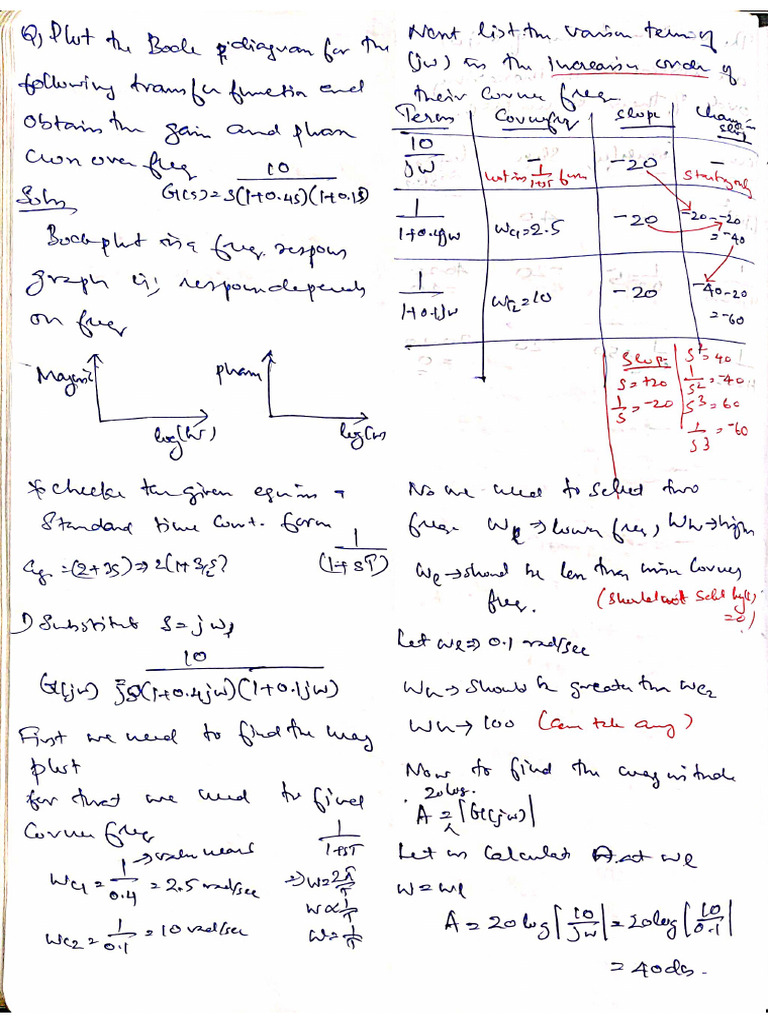 Q) Plot the Bode diagram for the
following transfer function and
obtain the gain and phase
cross over freq
G(s) = 10 / s(1+0.4s)(1+0.1s)
Soln
Bode plot is a freq. respons
graph ie, respons depends
on freq
Magni
log(w)
phase
log(w)
* checke the given eqn in
Standard time const. form
1/(1+sT)
eg. = (2+3s) => 2(1+3/2s)
1) Substitute s = jw,
G(jw) 10 / jw(1+0.4jw)(1+0.1jw)
First we need to find the mag
plot
for that we need to find
Corner freq
1/1+sT
wc1 = 1/0.4 = 2.5 rad/sec
=> w = 2π/T
w ∝ 1/T
wc2 = 1/0.1 = 10 rad/sec
w = 1/T
Next list the various term of
(jw) in the increasin order of
their Corner freq
Terms
Cornerfrq
slope
Change in slope
10/jw
-
not in 1/1+sT form
-20
-
starting only
1/1+0.4jw
wc1=2.5
-20
-20-20
=-40
1/1+0.1jw
wc2=10
-20
-40-20
=-60
slope
s=+20
1/s=-20
s²=40
1/s²=-40
s³=60
1/s3=-60
No we need to select two
freq. wl → lower freq, wh → high
wl → should be less than min Corner
freq.
(Should not selt
=0)
Let wl => 0.1 rad/sec
wh → should be greater than wc2
wh → 100 (can take any)
Now to find the magnitude
A = 20log |G(jw)|
Let us Calculat A at wl
w = wl
A = 20 log |10/jw| = 20log |10/0.1|
= 40db.